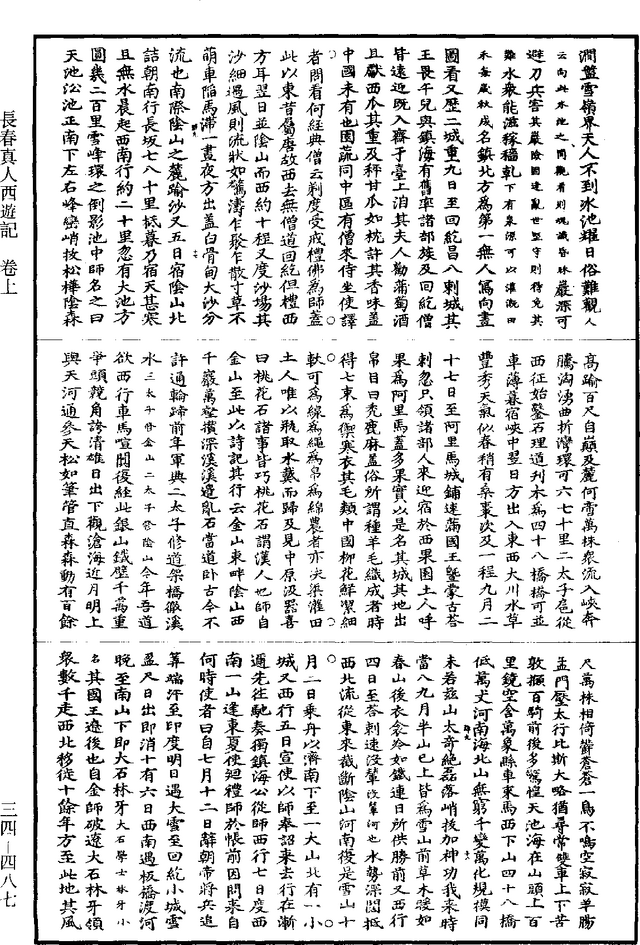 澗盤雪嶺界天人不到氷池耀日俗難觀人
云向此氷池之間觀看則魂識昏昧巖深可
避刀兵害其巖險固逢亂世堅守則得免其
難水衆能滋稼穡乾下有泉源可以灌溉田
禾每歲秋成名鎮北方為第一無人寫向畫
圖看又歷二城重九日至回紇昌八剌城其
王畏午兒與鎮海有舊率諸部族及回紇僧
皆遠迎既入齋于臺上洎其夫人勸蒲萄酒
且獻西瓜其重及秤甘瓜如枕許其香味蓋
中國未有也園蔬同中區有僧來侍坐使譯
者問看何經典僧云剃度受戒禮佛為師蓋
此以東昔屬唐故西去無僧道回紇但禮西
方耳翌日並陰山而西約十程又度沙場其
沙細遇風則流狀如驚濤乍聚乍散寸草不
萌車陷馬滯一晝夜方出蓋白骨甸大沙分
流也南際陰山之麓踰沙又五日宿陰山北
詰朝南行長坂七八十里抵暮乃宿天甚寒
且無水晨起西南行約二十里忽有大池方
圓幾二百里雪峰環之倒影池中師名之曰
天池沿池正南下左右峰巒峭拔松樺陰森
高踰百尺自巔及麓何啻萬株衆流入峽奔
騰洶湧曲折灣環可六七十里二太子扈從
西征始鑿石理道刊木為四十八橋橋可並
車薄暮宿峽中翌日方出入東西大川水草
豐秀天氣似春稍有桑棗次及一程九月二
十七日至阿里馬城鋪速滿國王暨蒙古荅
剌忽只領諸部人來迎宿於西果園土人呼
果為阿里馬蓋多果實以是名其城其地出
帛目曰禿鹿麻蓋俗所謂種羊毛織成者時
得七束為禦寒衣其毛類中國柳花鮮潔細
軟可為線為繩為帛為綿農者亦決渠灌田
土人唯以瓶取水戴而歸及見中原汲器喜
曰桃花石諸事皆巧桃花石謂漢人也師自
金山至此以詩記其行云金山東畔陰山西
千巖萬壑攢深溪溪邊亂石當道卧古今不
許通輪蹄前年軍興二太子修道架橋徹溪
水三太子修金山二太子修陰山今年吾道
欲西行車馬喧闐復經此銀山鐵壁千萬重
爭頭競角誇清雄日出下觀滄海近月明上
與天河通參天松如筆管直森森動有百餘
尺萬株相倚鬱蒼蒼一鳥不鳴空寂寂羊腸
孟門壓太行比斯大略猶尋常雙車上下苦
敦攧百騎前後多驚惶天池海在山頭上百
里鏡空含萬象縣車束馬西下山四十八橋
低萬丈河南海北山無窮千變萬化規模同
未若兹山太奇絶磊落峭拔加神功我來時
當八九月半山已上皆為雪山前草木暖如
春山後衣衾冷如鐵連日所供勝前又西行
四日至荅剌速沒輦沒輦河也水勢深闊抵
西北流從東來截斷陰山河南復是雪山十
月二日乘舟以濟南下至一大山北有一小
城又西行五日宣使以師奉詔來去行在漸
邇先往馳奏獨鎮海公從師西行七日度西
南一山逢東夏使迴禮師於帳前因問來自
何時使者曰自七月十二日辭朝帝將兵追
筭端汗至印度明日遇大雪至回紇小城雪
盈尺日出即消十有六日西南過板橋渡河
晚至南山下即大石林牙大石學士林牙小
名其國王遼後也自金師破遼大石林牙領
衆數千走西北移徙十餘年方至此地其風
長春真人西遊記 卷上
三四－四八七